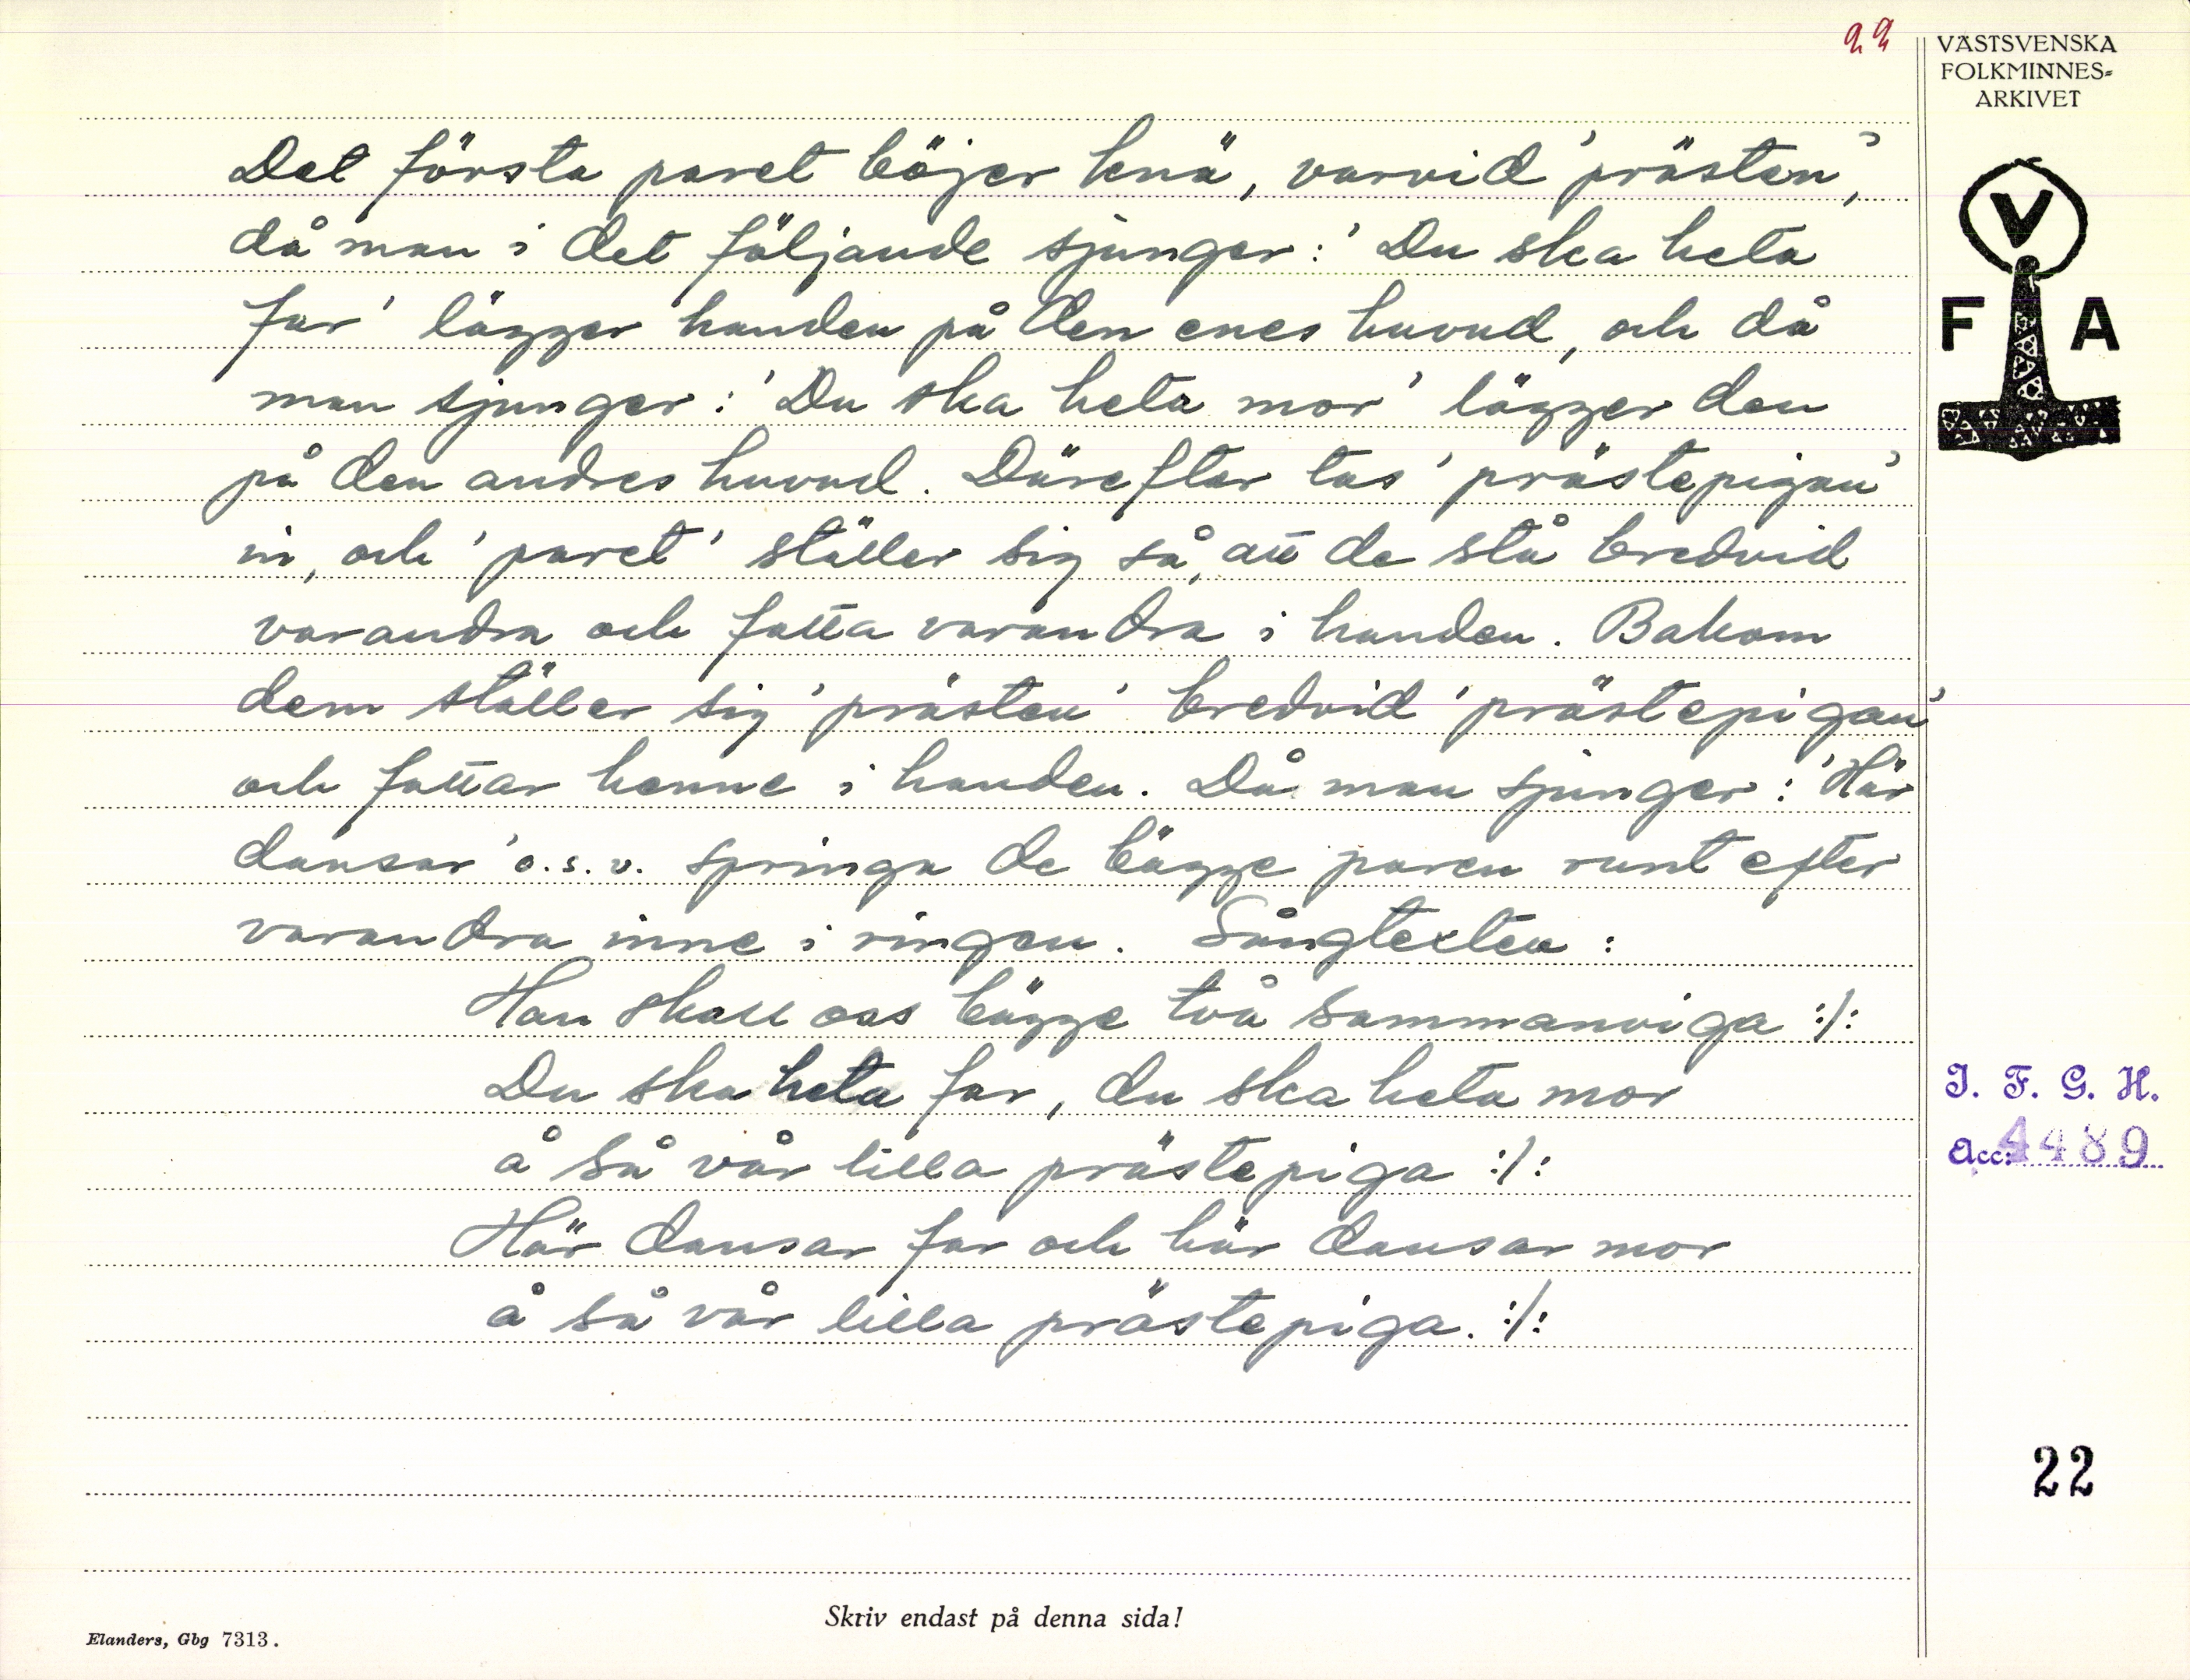 22
VÄSTSVENSKA
FOLKMINNES=
ARKIVET
Det första paret böjer knä, varvid 'prästen',
då man i det följande sjunger: 'Du ska heta
far' lägger handen på den enes huvud, och då
man sjunger: 'Du ska heta mor' lägger den
på den andres huvud. Därefter tas 'prästepigan'
in, och 'paret' ställer sig så, att de stå bredvid
varandra och fatta varandra i handen. Bakom
dem ställer sig 'prästen' bredvid 'prästepigan'
och fattar henne i handen. Då man sjunger: 'Här
dansar' o.s.v. springa de bägge paren runt efter
varandra inne i ringen. Sångtexten:
Han skall oss bägge två sammanviga :/:
Du ska heta far, du ska heta mor
å så vår lilla prästepiga :/:
Här dansar far och här dansar mor
å så vår lilla prästepiga. :/:
V
F A
I. F. G. H.
Acc. 4489
22
Skriv endast på denna sida!
Elanders, Gbg 7313.